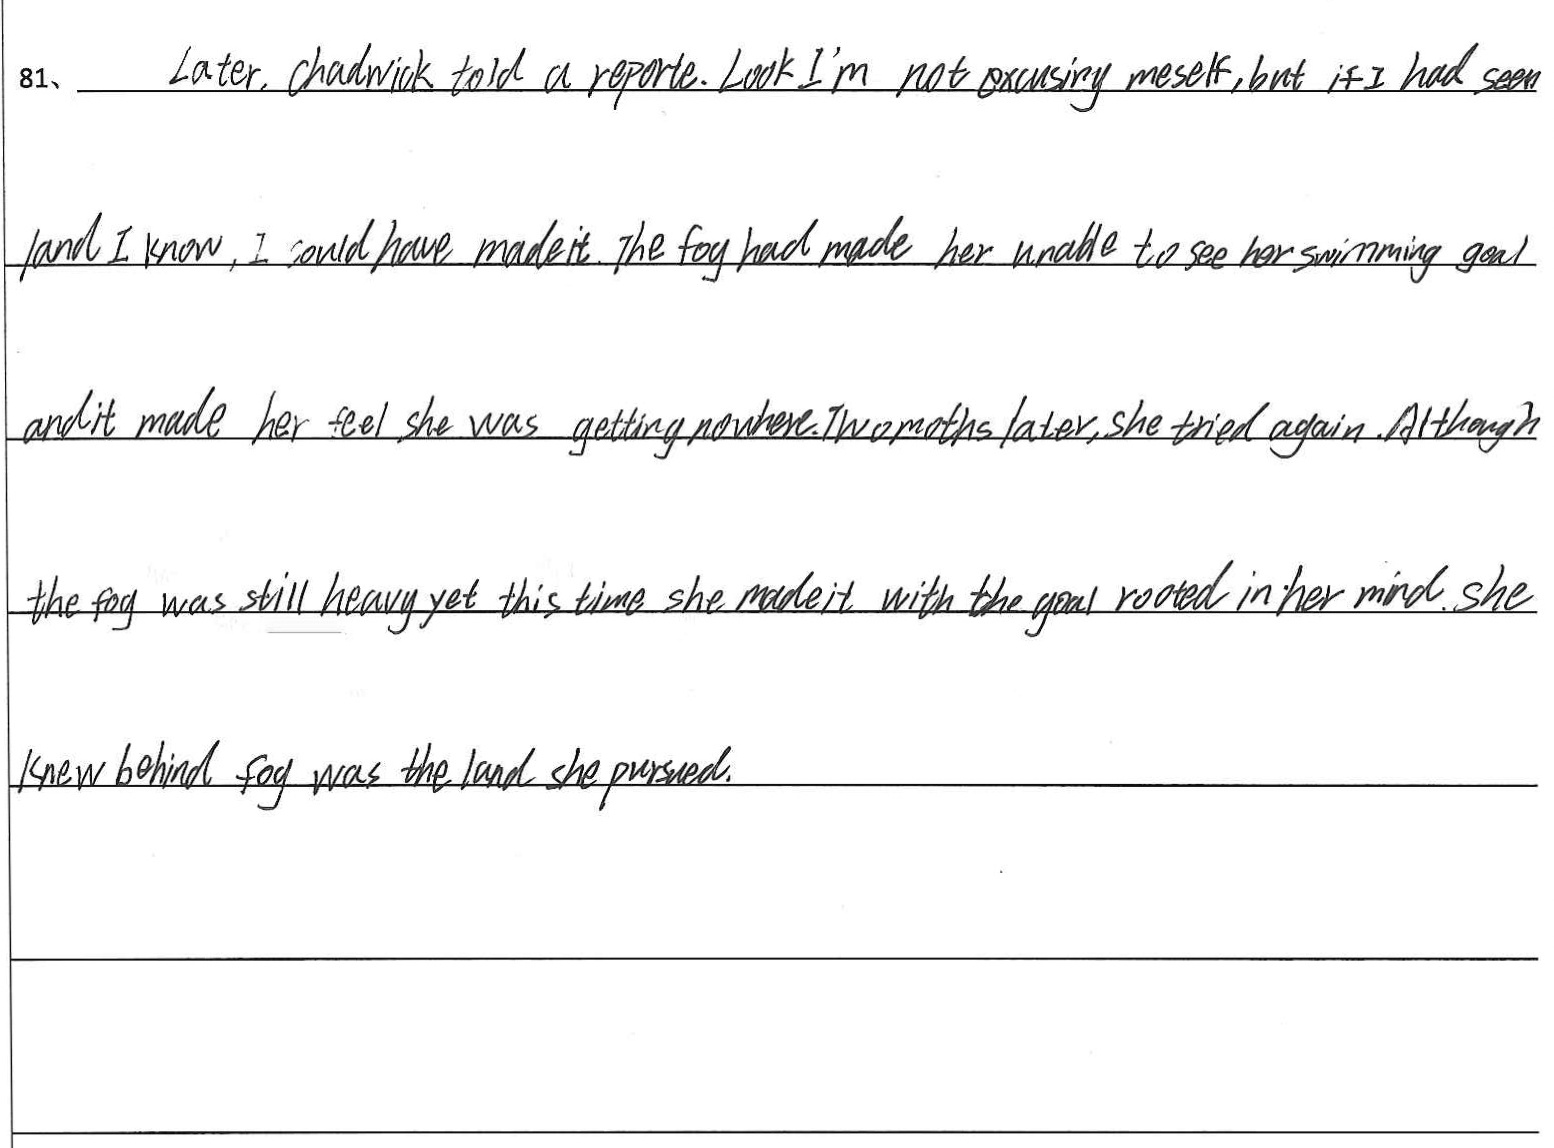 81、 Later, chadwick told a reporte. Look I'm not excusing meself, but if I had seen
land I know, I could have made it. The fog had made her unable to see her swimming goal
and it made her feel she was getting nowhere. Two moths later, she tried again. Although
the fog was still heavy yet this time she made it with the goal rooted in her mind. she
knew behind fog was the land she pursued.